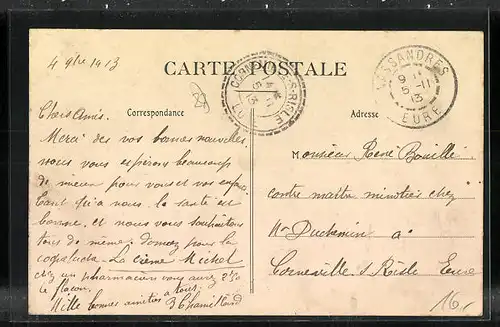 4 9bre 1913
CARTE POSTALE
Correspondance
Adresse
NASSANDRES
9 5-11 13
EURE
Chers Amis.
Merci des vos bonnes nouvelles
nous vous esperons beaucoup
de mieux pour vous et vos enfants
tant qu'a nous la santé est
bonne, et nous vous souhaitons
tous de même; donnez pour la
coqueluche La Crème Michel
chez un pharmacien vous avez
le flacon.
Mille bonnes amitiés a tous
Monsieur René Bouillé
contre maître minotier chez
Mr Duchemin a
Corneville s/ Risle Eure
16,-